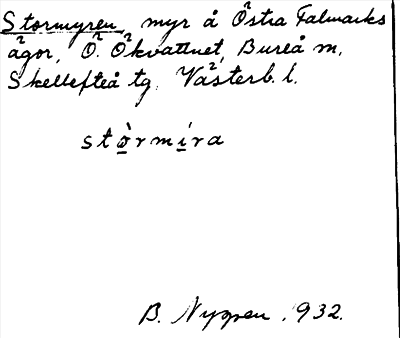 Stormyren, myr å Östra Falmarks
ägor, Ö. Ökvattnet, Bureå m,
Skellefteå tg, Västerb. l.
stò̲rmi̲ra
B. Nygren 1932.